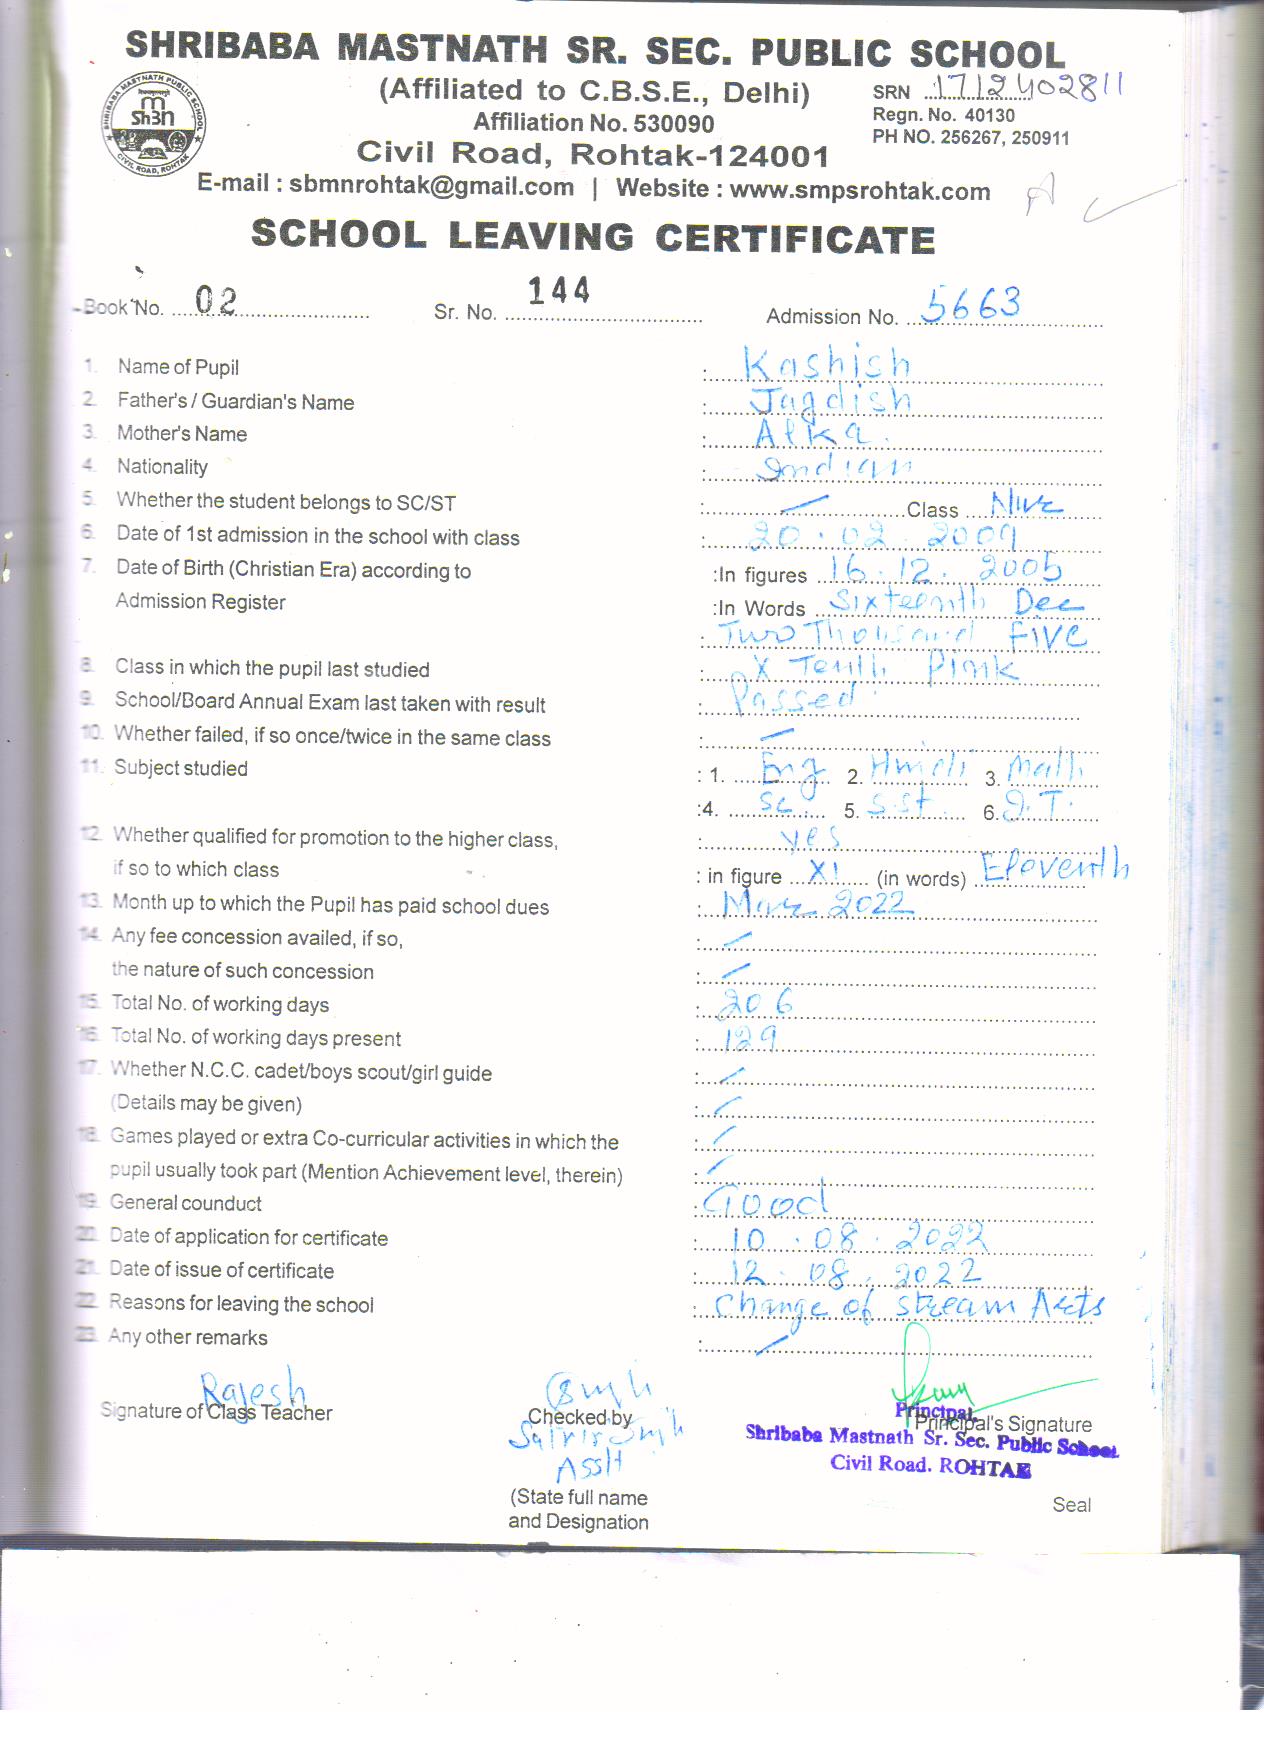 SHRIBABA MASTNATH SR. SEC. PUBLIC SCHOOL
(Affiliated to C.B.S.E., Delhi)
SRN 1712402811
Affiliation No. 530090
Regn. No. 40130
Civil Road, Rohtak-124001
PH NO. 256267, 250911
E-mail : sbmnrohtak@gmail.com | Website : www.smpsrohtak.com
SHRIBABA MASTNATH PUBLIC SCHOOL
CIVIL ROAD, ROHTAK
SCHOOL LEAVING CERTIFICATE
Book No. 02 Sr. No. 144 Admission No. 5663
1. Name of Pupil : Kashish
2. Father's / Guardian's Name : Jagdish
3. Mother's Name : Alka
4. Nationality : Indian
5. Whether the student belongs to SC/ST : — Class Nur
6. Date of 1st admission in the school with class : 20.02.2009
7. Date of Birth (Christian Era) according to :In figures 16.12.2005
Admission Register :In Words Sixteenth Dec
: Two Thousand FIVE
8. Class in which the pupil last studied : X Tenth Pink
9. School/Board Annual Exam last taken with result : Passed
10. Whether failed, if so once/twice in the same class : —
11. Subject studied : 1. Eng 2. Hindi 3. Math
:4. Sc 5. S.St. 6. I.T.
12. Whether qualified for promotion to the higher class, : yes
if so to which class : in figure XI (in words) Eleventh
13. Month up to which the Pupil has paid school dues : Mar 2022
14. Any fee concession availed, if so, : —
the nature of such concession : —
15. Total No. of working days : 206
16. Total No. of working days present : 129
17. Whether N.C.C. cadet/boys scout/girl guide : —
(Details may be given) : —
18. Games played or extra Co-curricular activities in which the : —
pupil usually took part (Mention Achievement level, therein) : —
19. General counduct : Good
20. Date of application for certificate : 10.08.2022
21. Date of issue of certificate : 12.08.2022
22. Reasons for leaving the school : Change of stream Arts
23. Any other remarks : —
Rajesh
Signature of Class Teacher Checked by Principal's Signature
Principal,
Shribaba Mastnath Sr. Sec. Public School
Civil Road. ROHTAK
Asstt
(State full name
and Designation
Seal